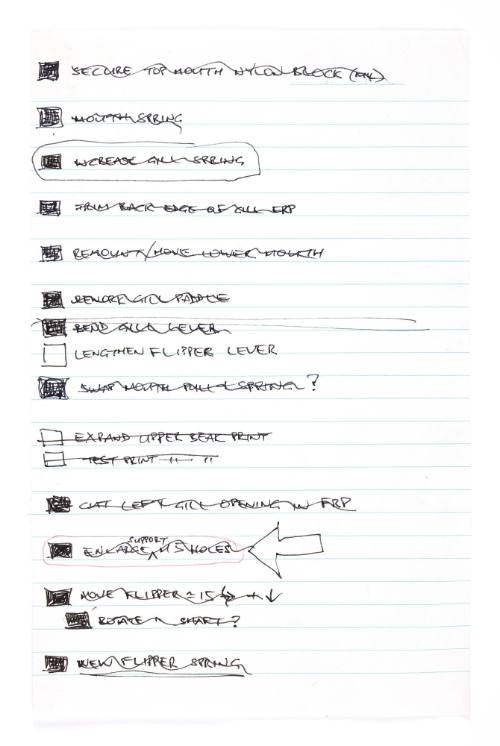 SECURE TOP MOUTH NYLON BLOCK (M4)
MOUTH SPRING
INCREASE GILL SPRING
TRIM BACK EDGE OF GILL FRP
REMOUNT/MOVE LOWER MOUTH
GILL PADDLE
BEND GILL LEVER
LENGTHEN FLIPPER LEVER
SWAP MOUTH PULL & SPRING?
EXPAND UPPER BEAK PRINT
TEST PRINT " "
CUT LEFT GILL OPENING IN FRP
SUPPORT
ENLARGE ^ HOLES
MOVE FLIPPER ≈ 15 → + ↓
ROTATE SHAFT?
NEW FLIPPER SPRING